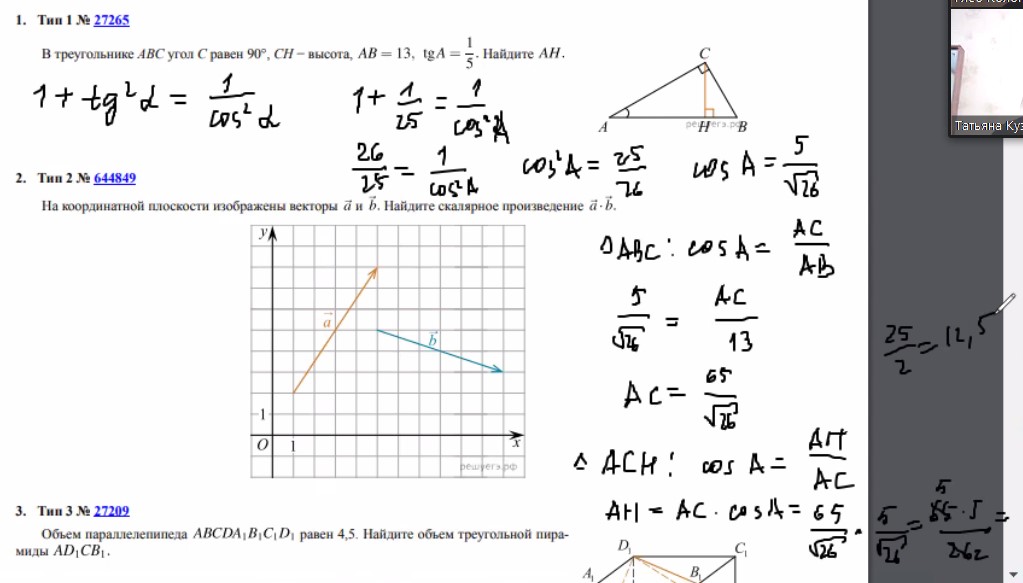 1. Тип 1 № 27265
В треугольнике ABC угол C равен 90°, CH – высота, AB = 13, tgA = 1/5. Найдите AH.
1 + tg²α = 1/cos²α
1 + 1/25 = 1/cos²A
26/25 = 1/cos²A
cos²A = 25/26
cos A = 5/√26
C
A
H
B
решуегэ.рф
2. Тип 2 № 644849
На координатной плоскости изображены векторы a⃗ и b⃗. Найдите скалярное произведение a⃗ · b⃗.
y
a⃗
b⃗
1
O
1
x
решуегэ.рф
ΔABC: cos A = AC/AB
5/√26 = AC/13
AC = 65/√26
Δ ACH: cos A = AH/AC
AH = AC · cos A = 65/√26 · 5/√26 = 65 · 5/26 =
5
2
25/2 = 12,5
3. Тип 3 № 27209
Объем параллелепипеда ABCDA₁B₁C₁D₁ равен 4,5. Найдите объем треугольной пира-
миды AD₁CB₁.
D₁
C₁
A₁
B₁
Татьяна Куз